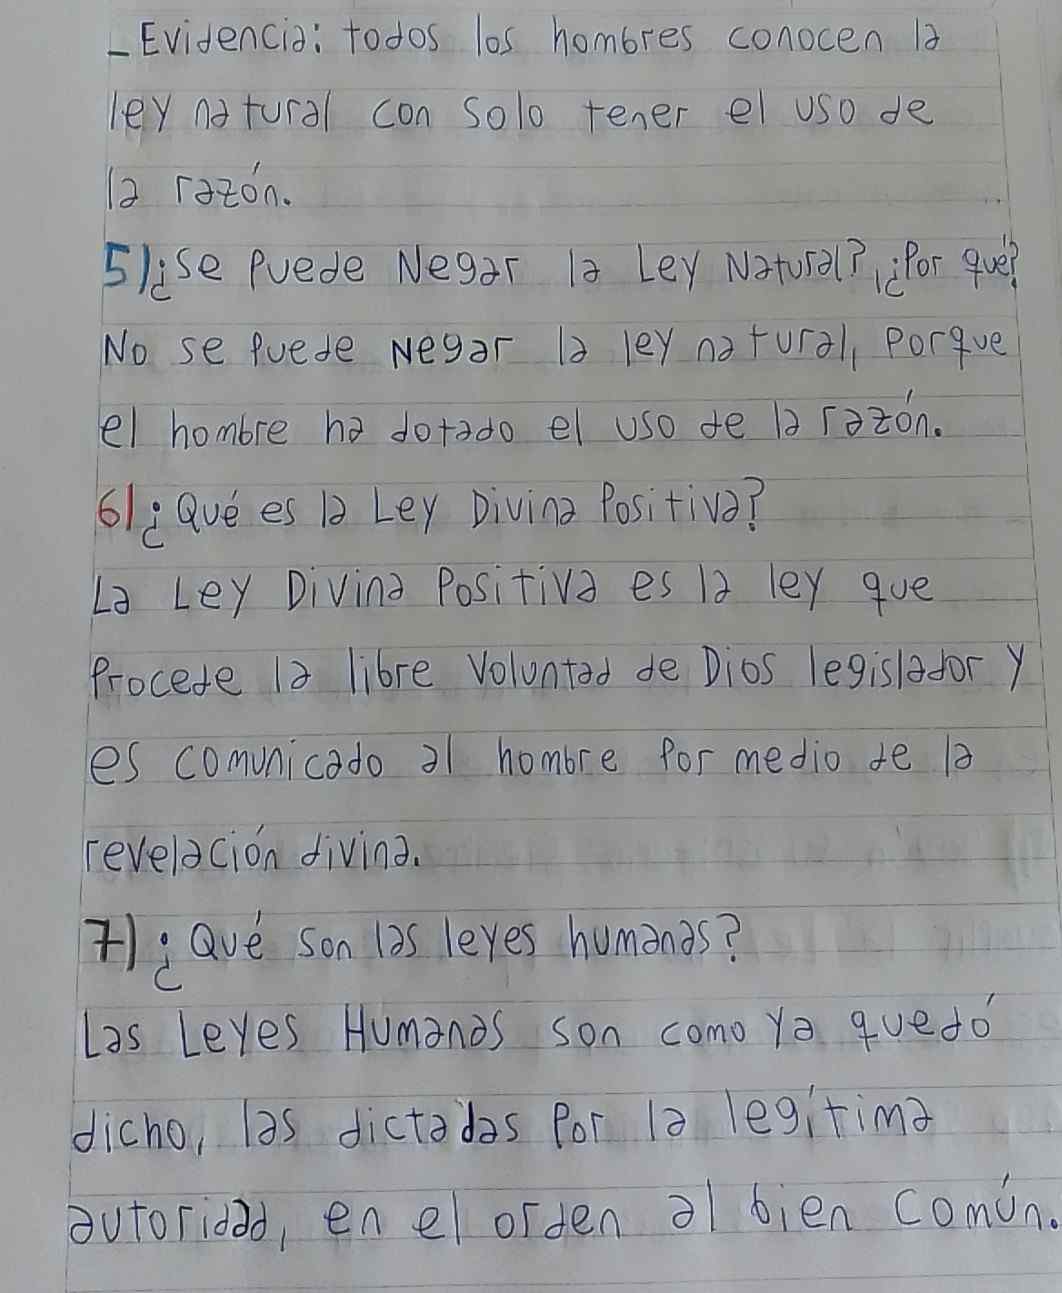 - Evidencia: todos los hombres conocen la
ley natural con solo tener el uso de
la razón.
5) ¿Se Puede Negar la Ley Natural?, ¿Por qué?
No se Puede Negar la ley natural, Porque
el hombre ha dotado el uso de la razón.
6) ¿Qué es la Ley Divina Positiva?
La Ley Divina Positiva es la ley que
Procede la libre Voluntad de Dios legislador y
es comunicado al hombre Por medio de la
revelación divina.
7) ¿Qué son las leyes humanas?
Las Leyes Humanas son como ya quedó
dicho, las dictadas Por la legítima
autoridad, en el orden al bien común.